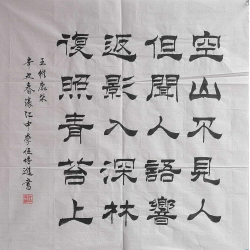 空山不見人
但聞人語響
返影入深林
復照青苔上
王維鹿柴